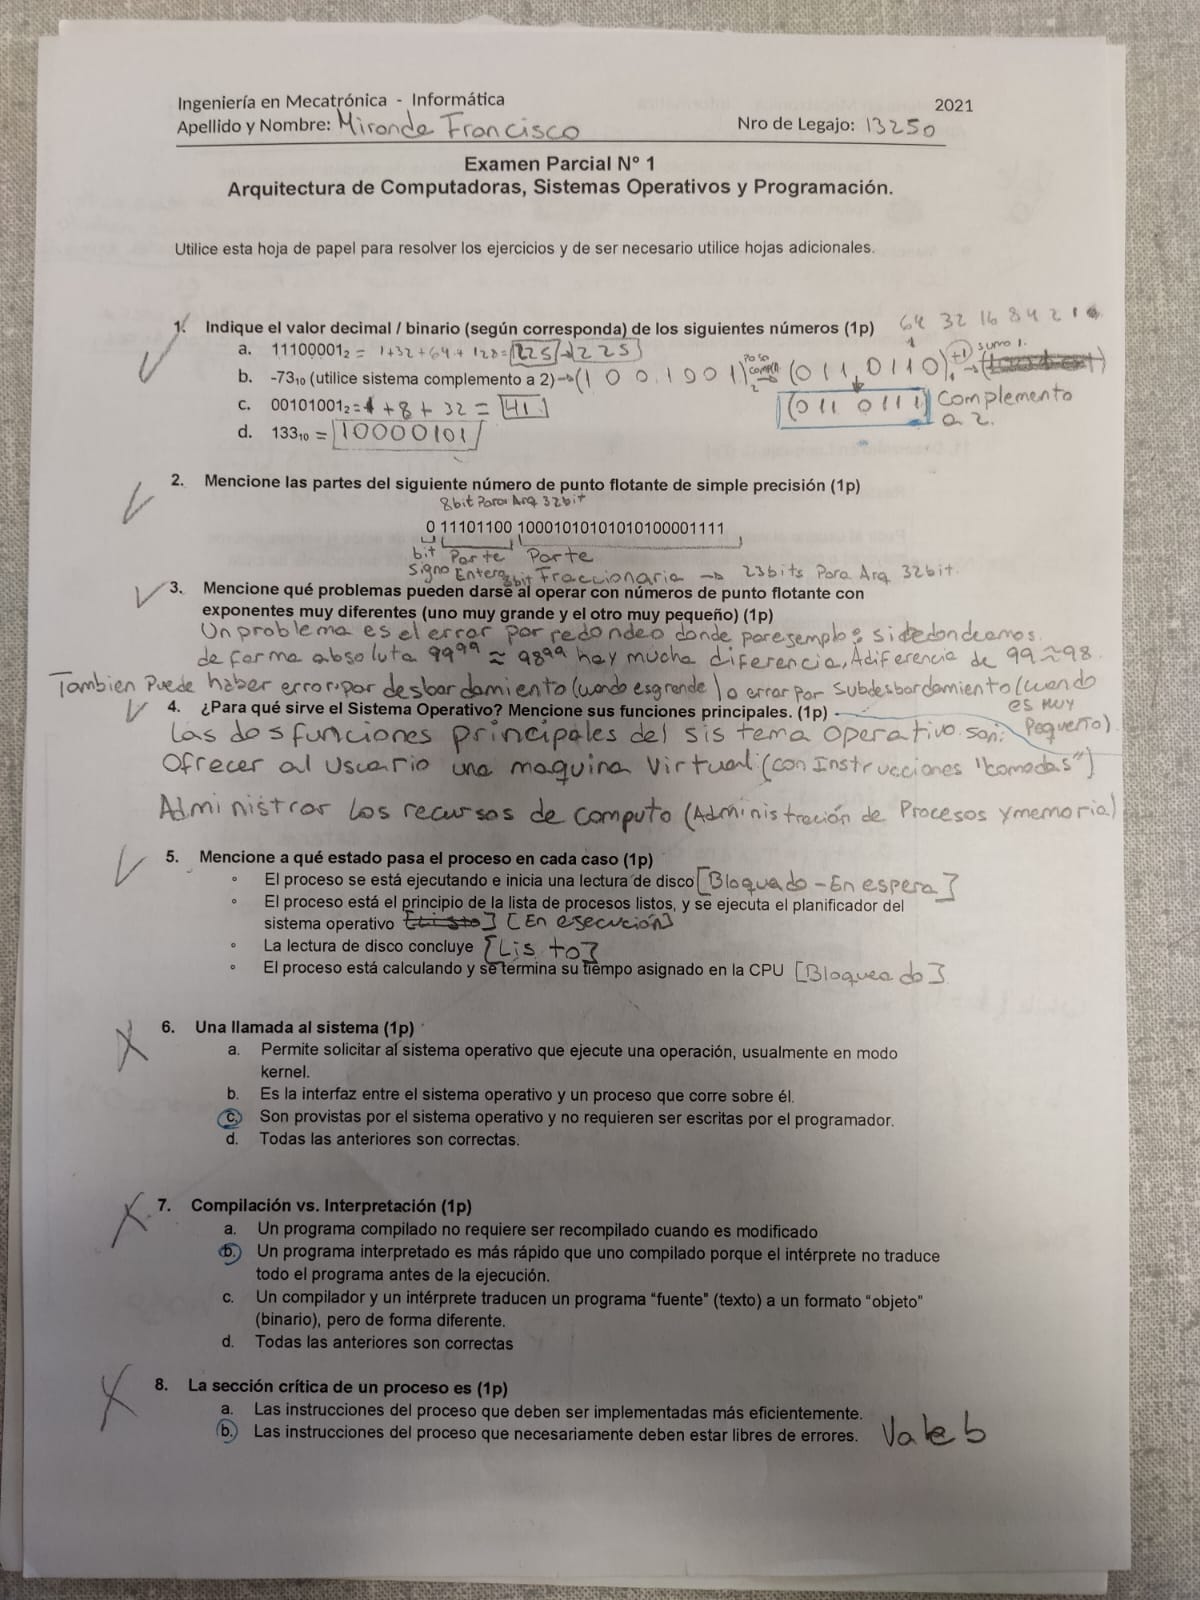 Ingeniería en Mecatrónica - Informática
2021
Apellido y Nombre: Miranda Francisco
Nro de Legajo: 13250
Examen Parcial N° 1
Arquitectura de Computadoras, Sistemas Operativos y Programación.
Utilice esta hoja de papel para resolver los ejercicios y de ser necesario utilice hojas adicionales.
1. Indique el valor decimal / binario (según corresponda) de los siguientes números (1p)
64 32 16 8 4 2 1
a. 11100001₂ = 1+32+64+128=225→225
suma 1.
b. -73₁₀ (utilice sistema complemento a 2)→(100.1001) paso compl 2 → (011,0110) +1 →
c. 00101001₂= 1 + 8 + 32 = 41.
(011 0111) Complemento
a 2.
d. 133₁₀ = 10000101
2. Mencione las partes del siguiente número de punto flotante de simple precisión (1p)
8bit Para Arq 32bit
0 11101100 10001010101010100001111
bit Parte Parte
Signo Entera 8bit Fraccionaria → 23bits Para Arq 32bit.
3. Mencione qué problemas pueden darse al operar con números de punto flotante con
exponentes muy diferentes (uno muy grande y el otro muy pequeño) (1p)
Un problema es el error por redondeo donde por ejemplo: si redondeamos
de forma absoluta 99⁹⁹ ≈ 98⁹⁹ hay mucha diferencia, A diferencia de 99≈98
Tambien Puede haber error por desbordamiento (cuando es grande) o error por Subdesbordamiento (cuando
es muy
Pequeño)
4. ¿Para qué sirve el Sistema Operativo? Mencione sus funciones principales. (1p)
Las dos funciones principales del sistema operativo son:
Ofrecer al Usuario una maquina Virtual (con Instrucciones "comodas")
Administrar los recursos de computo (Administración de Procesos y memoria)
5. Mencione a qué estado pasa el proceso en cada caso (1p)
◦ El proceso se está ejecutando e inicia una lectura de disco [Bloquado - En espera]
◦ El proceso está el principio de la lista de procesos listos, y se ejecuta el planificador del
sistema operativo [Listo] [En ejecución]
◦ La lectura de disco concluye [Listo]
◦ El proceso está calculando y se termina su tiempo asignado en la CPU [Bloqueado]
6. Una llamada al sistema (1p)
a. Permite solicitar al sistema operativo que ejecute una operación, usualmente en modo
kernel.
b. Es la interfaz entre el sistema operativo y un proceso que corre sobre él.
c. Son provistas por el sistema operativo y no requieren ser escritas por el programador.
d. Todas las anteriores son correctas.
7. Compilación vs. Interpretación (1p)
a. Un programa compilado no requiere ser recompilado cuando es modificado
b. Un programa interpretado es más rápido que uno compilado porque el intérprete no traduce
todo el programa antes de la ejecución.
c. Un compilador y un intérprete traducen un programa “fuente” (texto) a un formato “objeto”
(binario), pero de forma diferente.
d. Todas las anteriores son correctas
8. La sección crítica de un proceso es (1p)
a. Las instrucciones del proceso que deben ser implementadas más eficientemente.
b. Las instrucciones del proceso que necesariamente deben estar libres de errores. Vale b